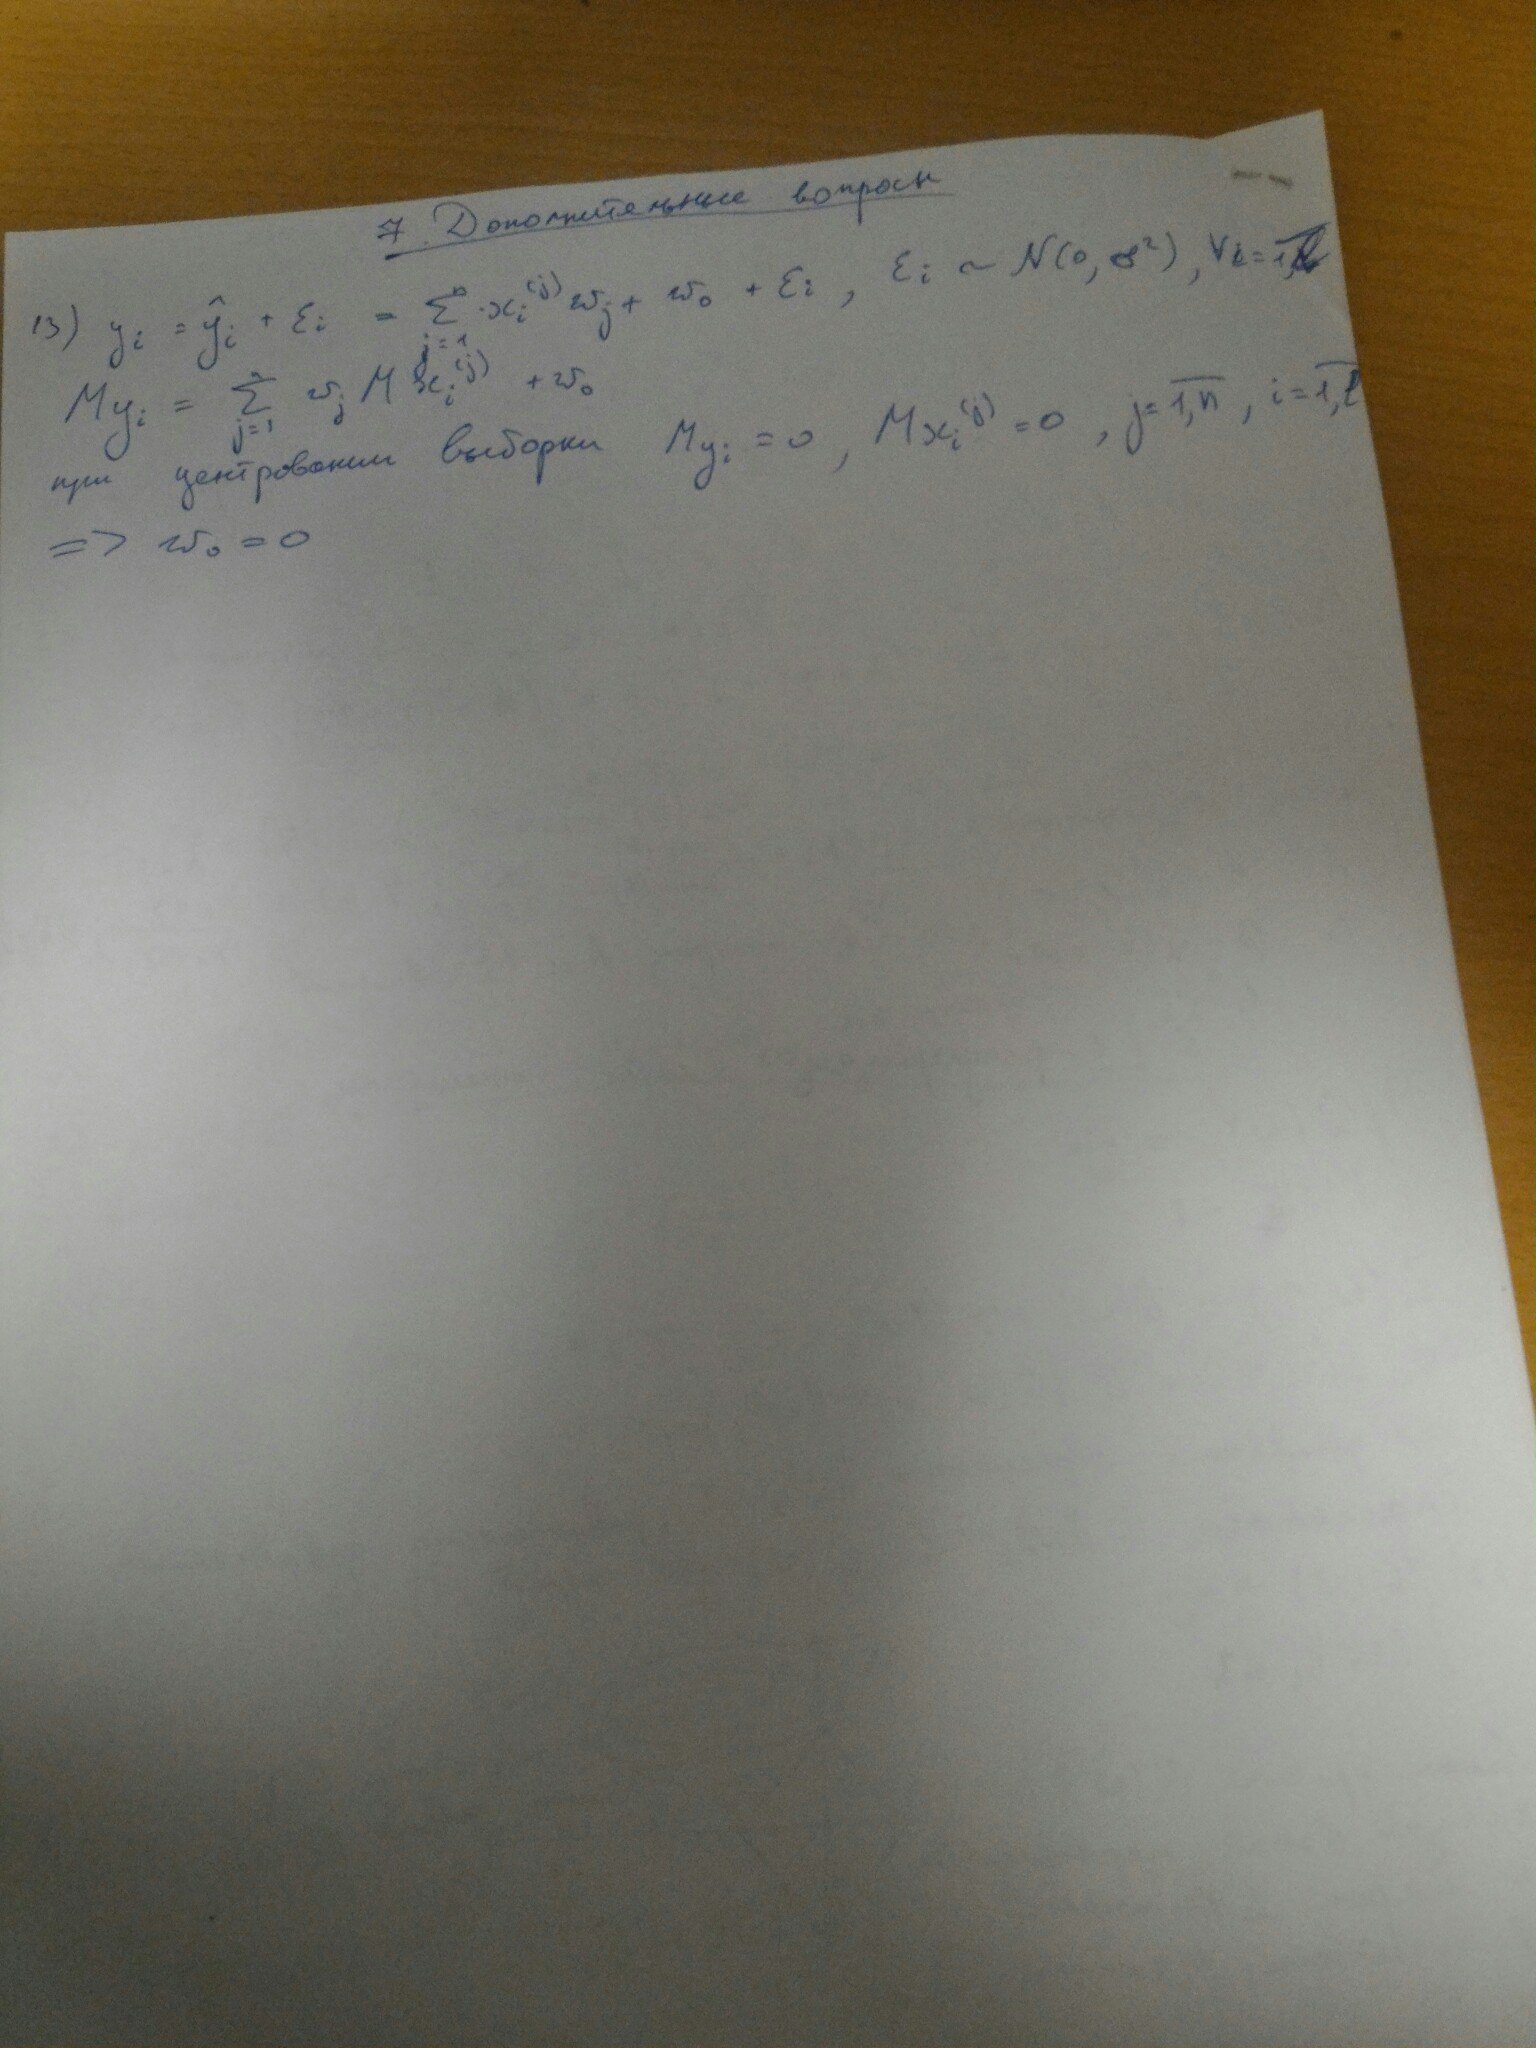 7. Дополнительные вопросы
13) yᵢ = ŷᵢ + εᵢ = ∑ⱼ₌₁ⁿ xᵢ⁽ʲ⁾ wⱼ + w₀ + εᵢ , εᵢ ~ N(0, σ²), ∀i = 1,l
Myᵢ = ∑ⱼ₌₁ⁿ wⱼ M xᵢ⁽ʲ⁾ + w₀
при центровании выборки Myᵢ = 0 , Mxᵢ⁽ʲ⁾ = 0 , j = 1,n , i = 1,l
=> w₀ = 0